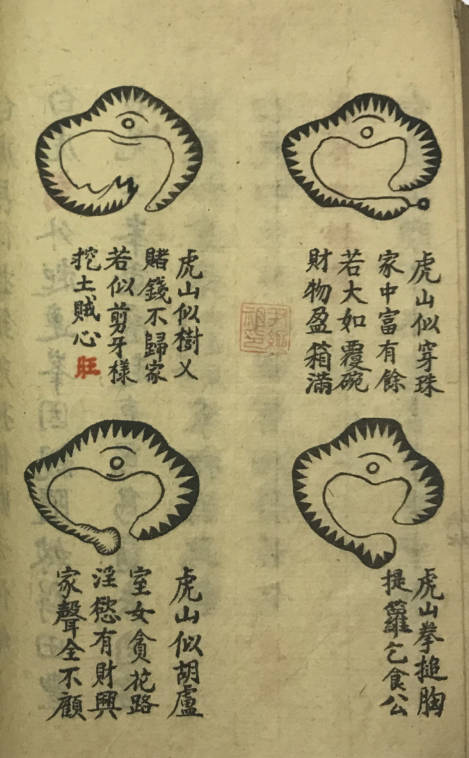 虎山似穿珠
家中富有餘
若大如覆碗
財物盈箱滿
虎山拳搥胸
提籮乞食公
虎山似樹乂
賭錢不歸家
若似剪牙樣
挖土賊心旺
虎山似胡盧
室女貪花路
淫慾有財興
家聲全不顧